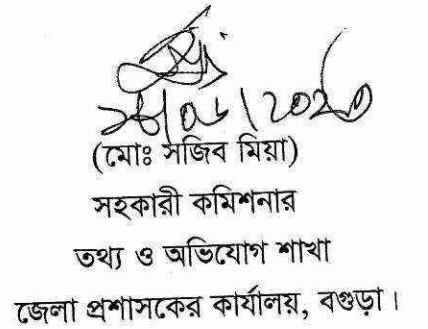 (মোঃ সজিব মিয়া)
সহকারী কমিশনার
তথ্য ও অভিযোগ শাখা
জেলা প্রশাসকের কার্যালয়, বগুড়া।